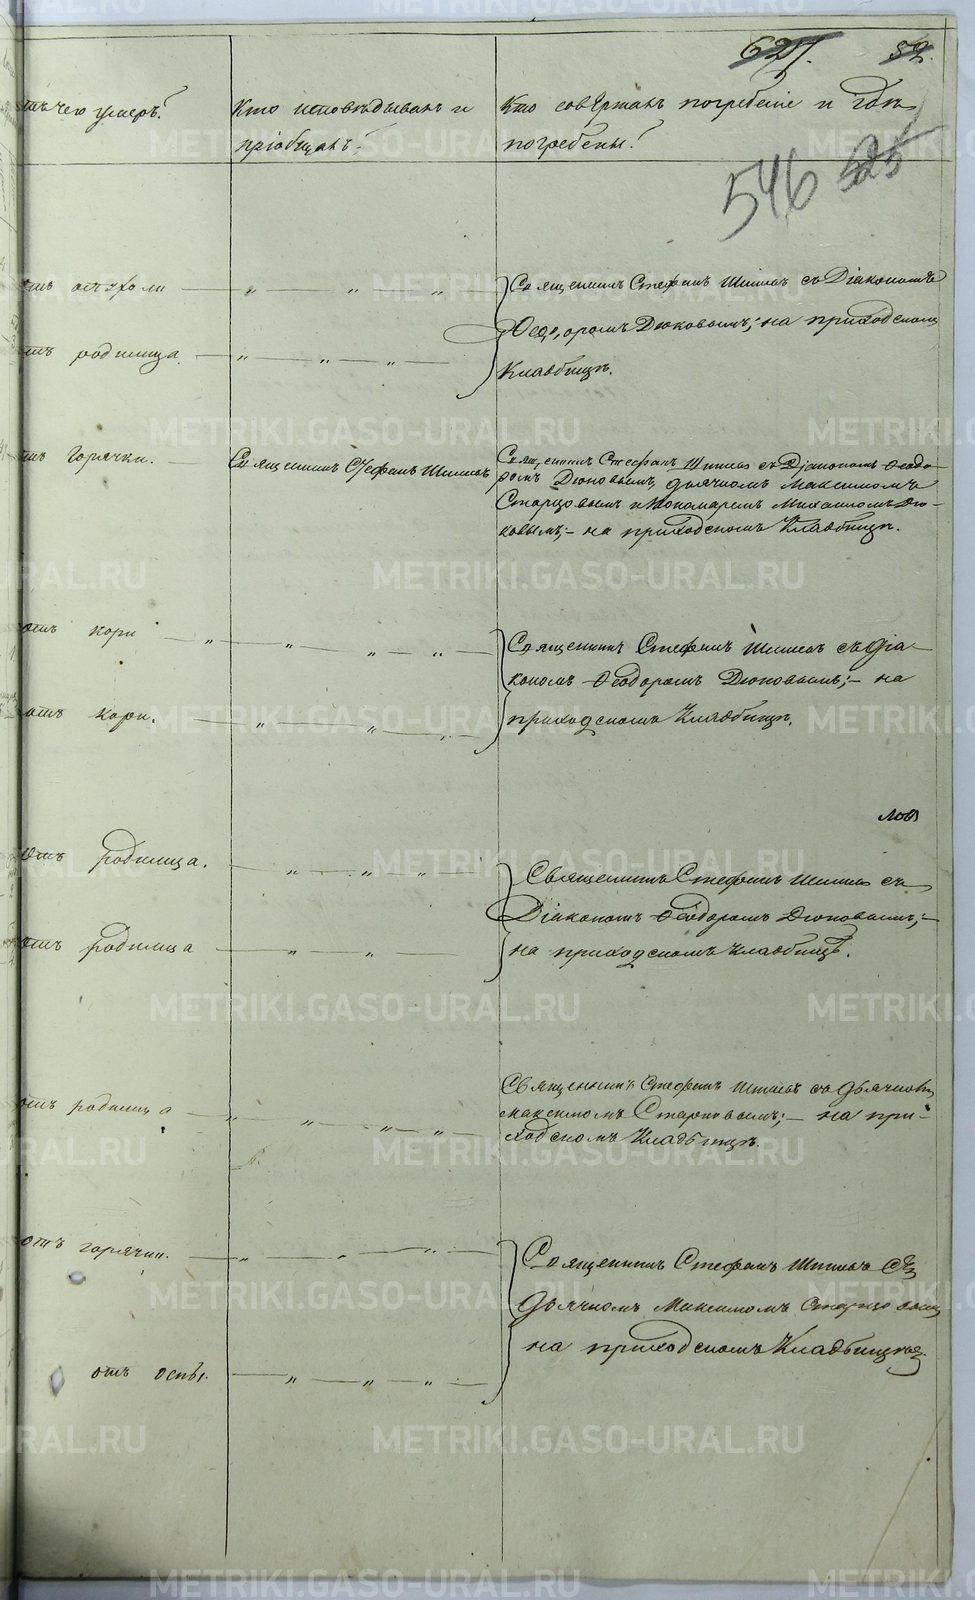 627. 52.
отъ чего умеръ? Кто исповѣдывалъ и Кто совершалъ погребеніе и гдѣ
пріобщалъ? погребены?
546 525
отъ опухоли — „ — „ — „ Священникъ Стефанъ Шишевъ съ Діакономъ
Ѳеодоромъ Дюковымъ; на приходскомъ
отъ родимца — „ — „ — „ —
Кладбищѣ.
отъ горячки. — Священникъ Стефанъ Шишевъ Священникъ Стефанъ Шишевъ съ Діакономъ Ѳеодо-
ромъ Дюковымъ, дьячкомъ Максимомъ
Старцовымъ и Пономаремъ Михаиломъ Дю-
ковымъ; — на приходскомъ Кладбищѣ.
отъ кори — „ — „ — „ — „ — Священникъ Стефанъ Шишевъ съ Діа-
кономъ Ѳеодоромъ Дюковымъ; — на
отъ кори. — „ — „ — „ — приходскомъ Кладбищѣ.
отъ родимца. — „ — „ — „ — Священникъ Стефанъ Шишевъ съ
Діакономъ Ѳеодоромъ Дюковымъ; —
отъ родимца — „ — „ — на приходскомъ Кладбищѣ.
Священникъ Стефанъ Шишевъ съ дьячкомъ
отъ родимца — „ — „ — „ — „ — Максимомъ Старцовымъ; — на при-
ходскомъ Кладбищѣ.
отъ горячки. — „ — „ — „ — Священникъ Стефанъ Шишевъ съ
Дьячкомъ Максимомъ Старцовымъ
на приходскомъ Кладбищѣ.
отъ оспы. — „ — „ — „ —
METRIKI.GASO-URAL.RU